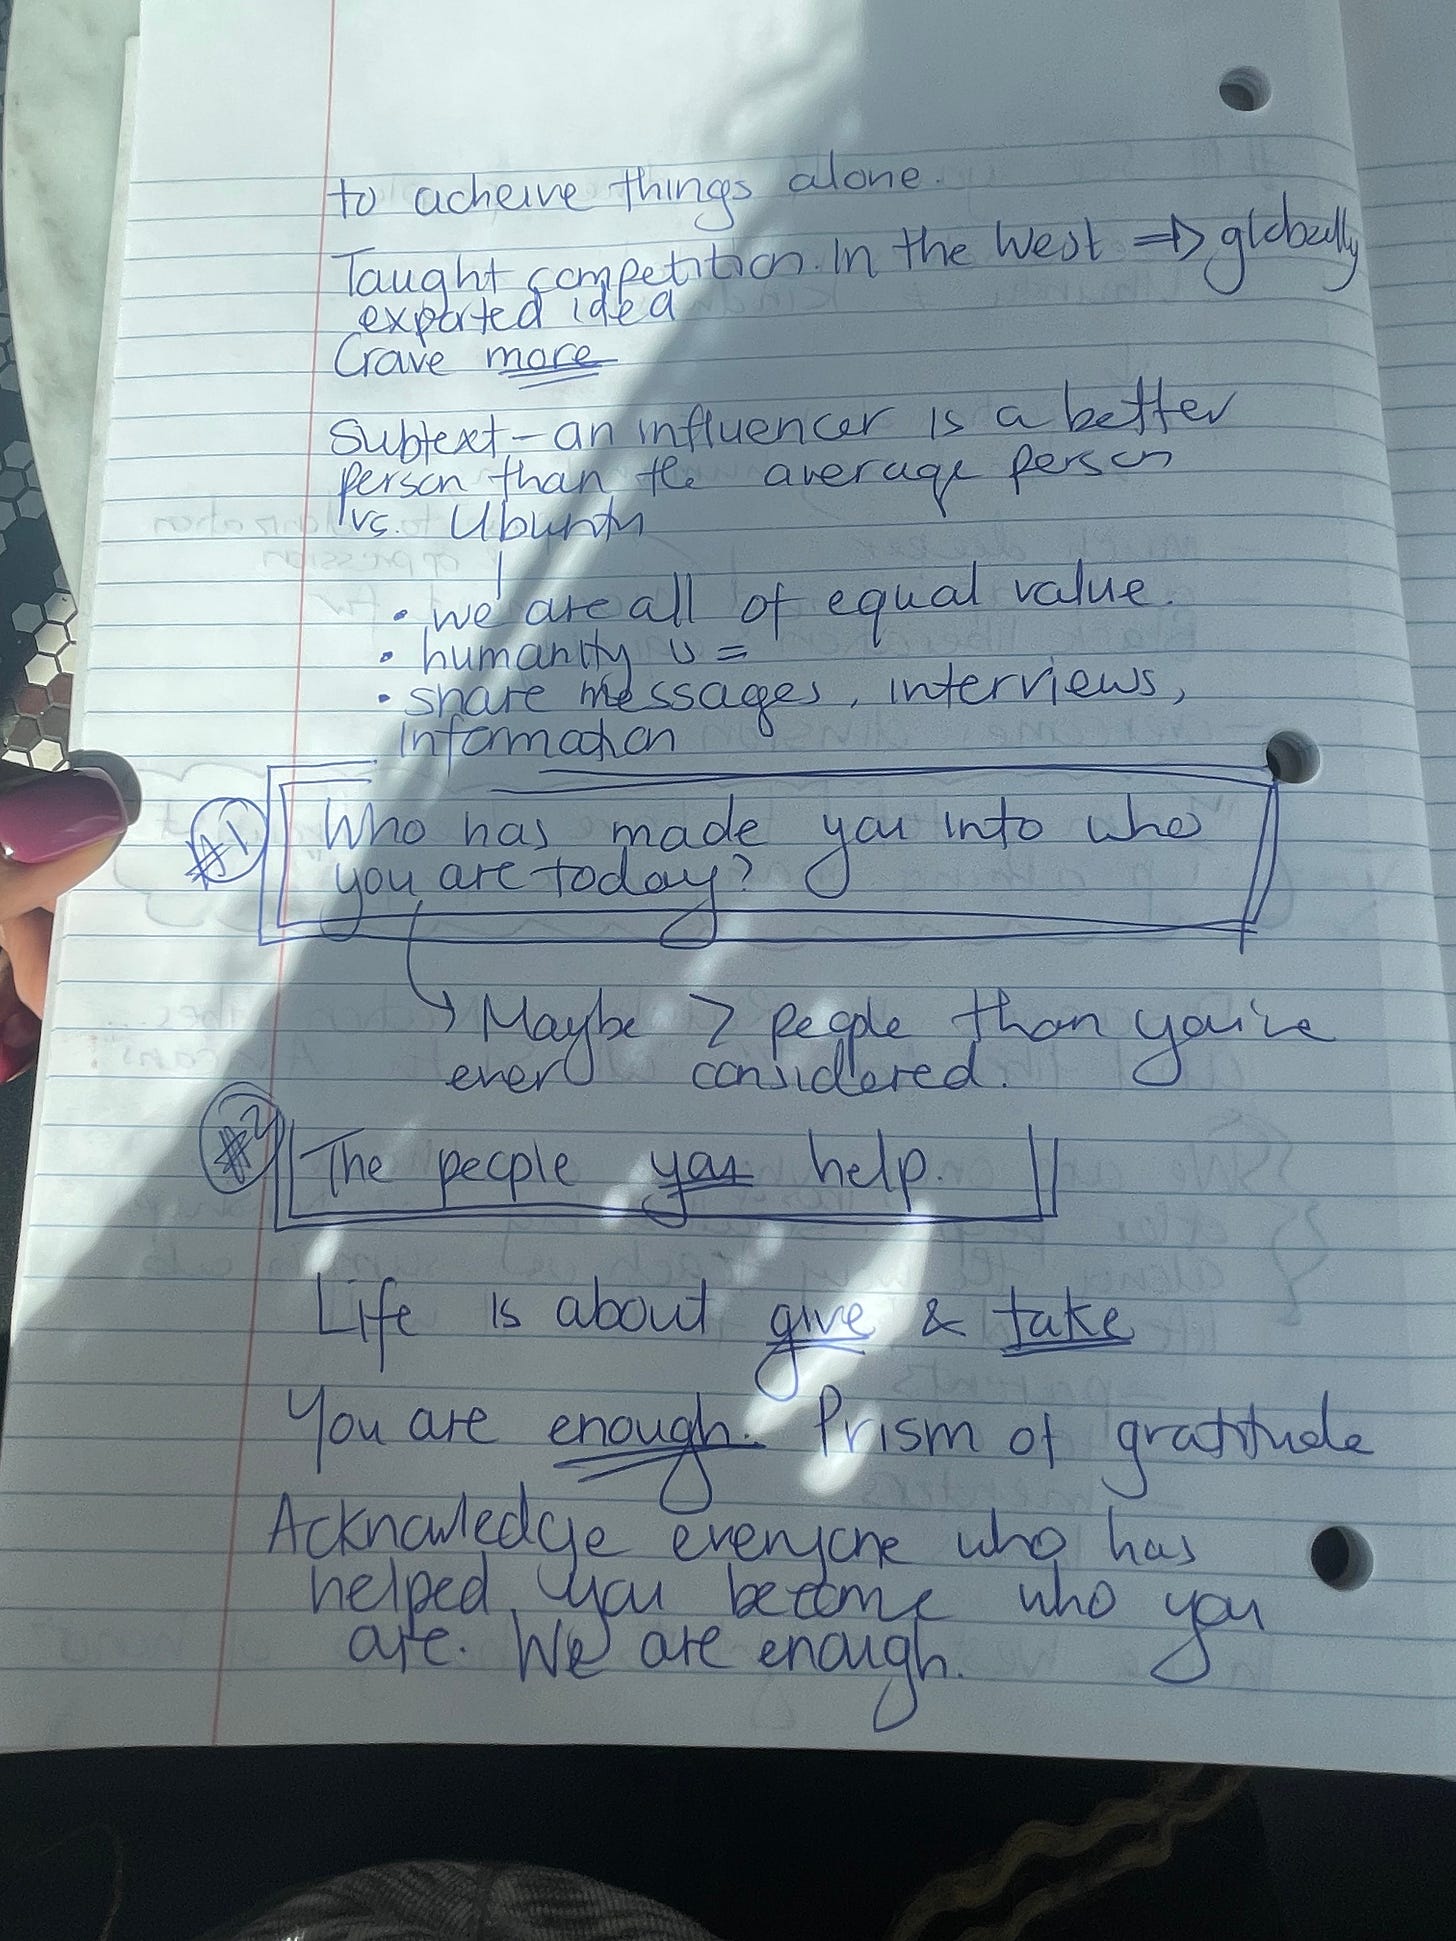 to acheive things alone.
Taught competition. In the West => globally
exported idea
Crave more
Subtext - an influencer is a better
person than the average person
vs. Ubuntu
• we are all of equal value.
• humanity =
• share messages, interviews,
information
#1 Who has made you into who
you are today?
Maybe > people than you've
ever considered.
#2 The people you help.
Life is about give & take
You are enough. Prism of gratitude
Acknowledge everyone who has
helped you become who you
are. We are enough.